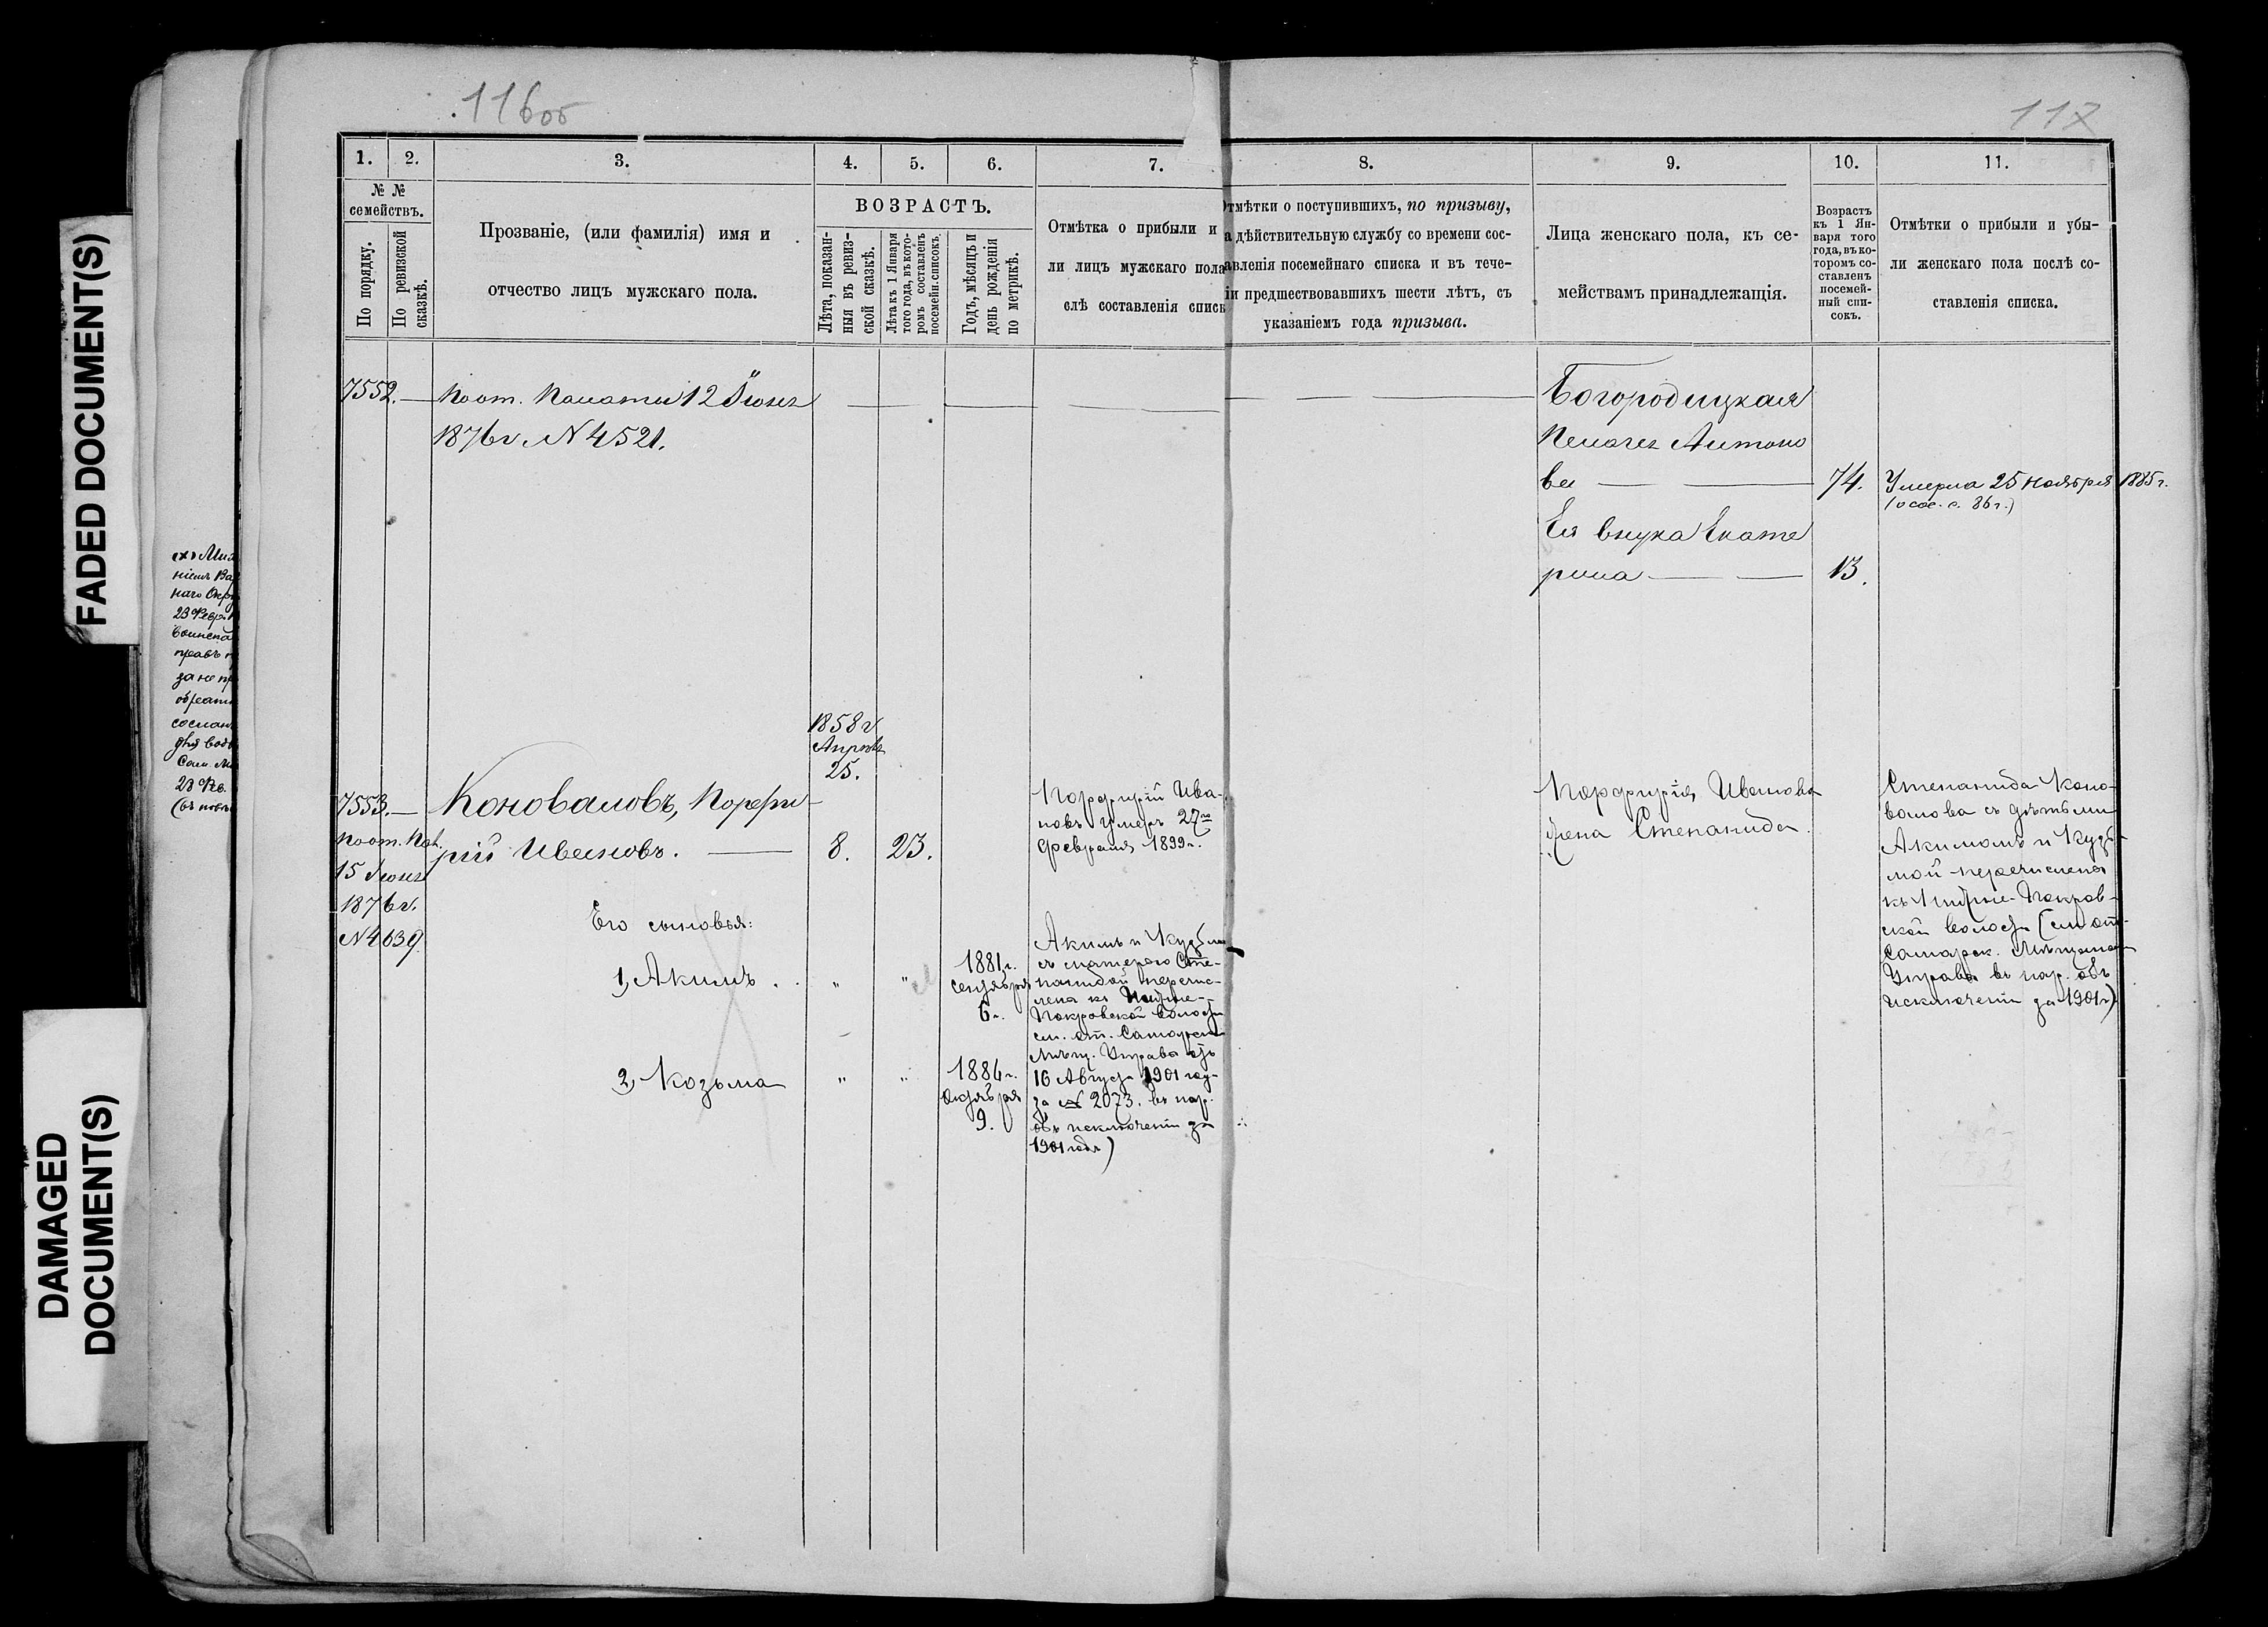 FADED DOCUMENT(S)
DAMAGED
DOCUMENT(S)
116об
117
1.
2.
3.
4.
5.
6.
7.
8.
9.
10.
11.
№ №
семействъ.
По порядку.
По ревизской
сказкѣ.
Прозваніе, (или фамилія) имя и
отчество лицъ мужскаго пола.
ВОЗРАСТЪ.
Лѣта, показан-
ныя въ ревиз-
ской сказкѣ.
Лѣта къ 1 Января
того года, въ кото-
ромъ составленъ
посемейн. списокъ.
Годъ, мѣсяцъ и
день рожденія
по метрикѣ.
Отмѣтка о прибыли и
ли лицъ мужскаго пола
слѣ составленія списк
Отмѣтки о поступившихъ, по призыву,
а дѣйствительную службу со времени сос-
авленія посемейнаго списка и въ тече-
іи предшествовавшихъ шести лѣтъ, съ
указаніемъ года призыва.
Лица женскаго пола, къ се-
мействамъ принадлежащія.
Возрастъ
къ 1 Ян-
варя того
года, въ ко-
торомъ со-
ставленъ
посемей-
ный спи-
сокъ.
Отмѣтки о прибыли и убы-
ли женскаго пола послѣ со-
ставленія списка.
7552. — Поот. Палаты 12 Іюня
1876 г. N 4521.
Богородицкая
Пелагея Антоно
ва — 74. Умерла 25 Ноября 1885 г.
86 г.)
Ея внука Екате
рина — 13.
1858 г
Апрѣля
25.
7553. — Коноваловъ, Порфи-
рій Ивановъ. — 8. 23.
Поот. Пал.
15 Іюня
1876 г.
N 4639.
Порфирій Ива-
новъ умеръ 27го
Февраля 1899 г.
Порфирія Иванова
жена Степанида.
Степанида Коно-
валова съ дѣтьми
Акимомъ и Кузь-
мой перечислена
къ Покров-
ской волости (см от
Самарск. Мѣщанск
Управы въ нар. объ
исключеніи за 1901 г)
Его сыновья:
1, Акимъ . . " "
1881 г.
сентября
6 г.
2, Козьма " "
1884 г.
Октября
9.
Акимъ и Кузьма
съ матерью Сте-
панидой перечис-
лена къ
Покровской волости
см. от. Самарской
Мѣщ. Управы отъ
16 Августа 1901 год
за N 2073. въ нар.
объ исключеніи за
1901 годъ)
23 Февр